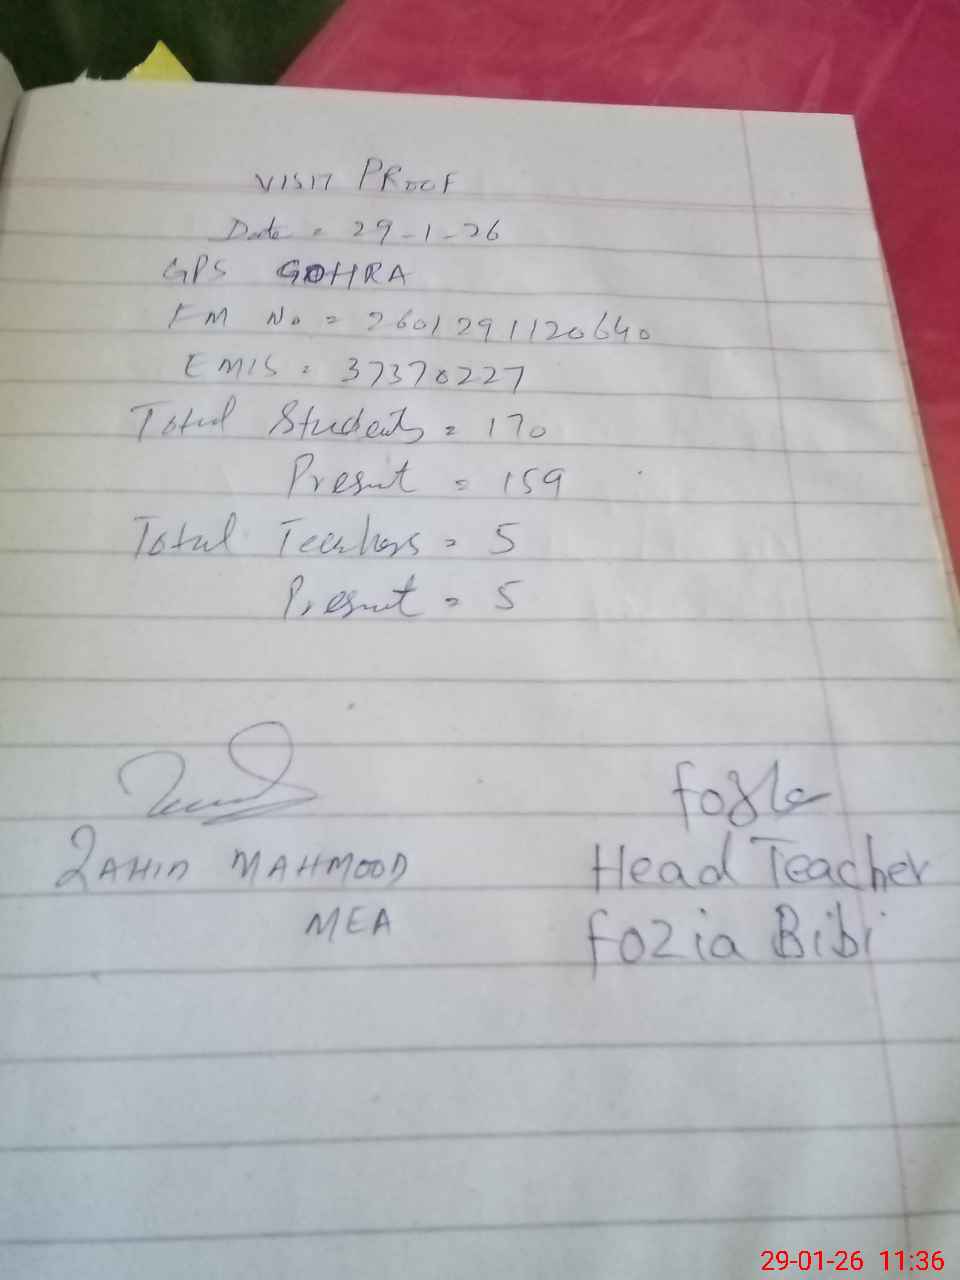 VISIT PROOF
Date = 29-1-26
GPS GOHRA
FM No = 2601291120640
EMIS = 37370227
Total Students = 170
Present = 159
Total Teachers = 5
Present = 5
ZAHID MAHMOOD
MEA
Head Teacher
Fozia Bibi
29-01-26 11:36